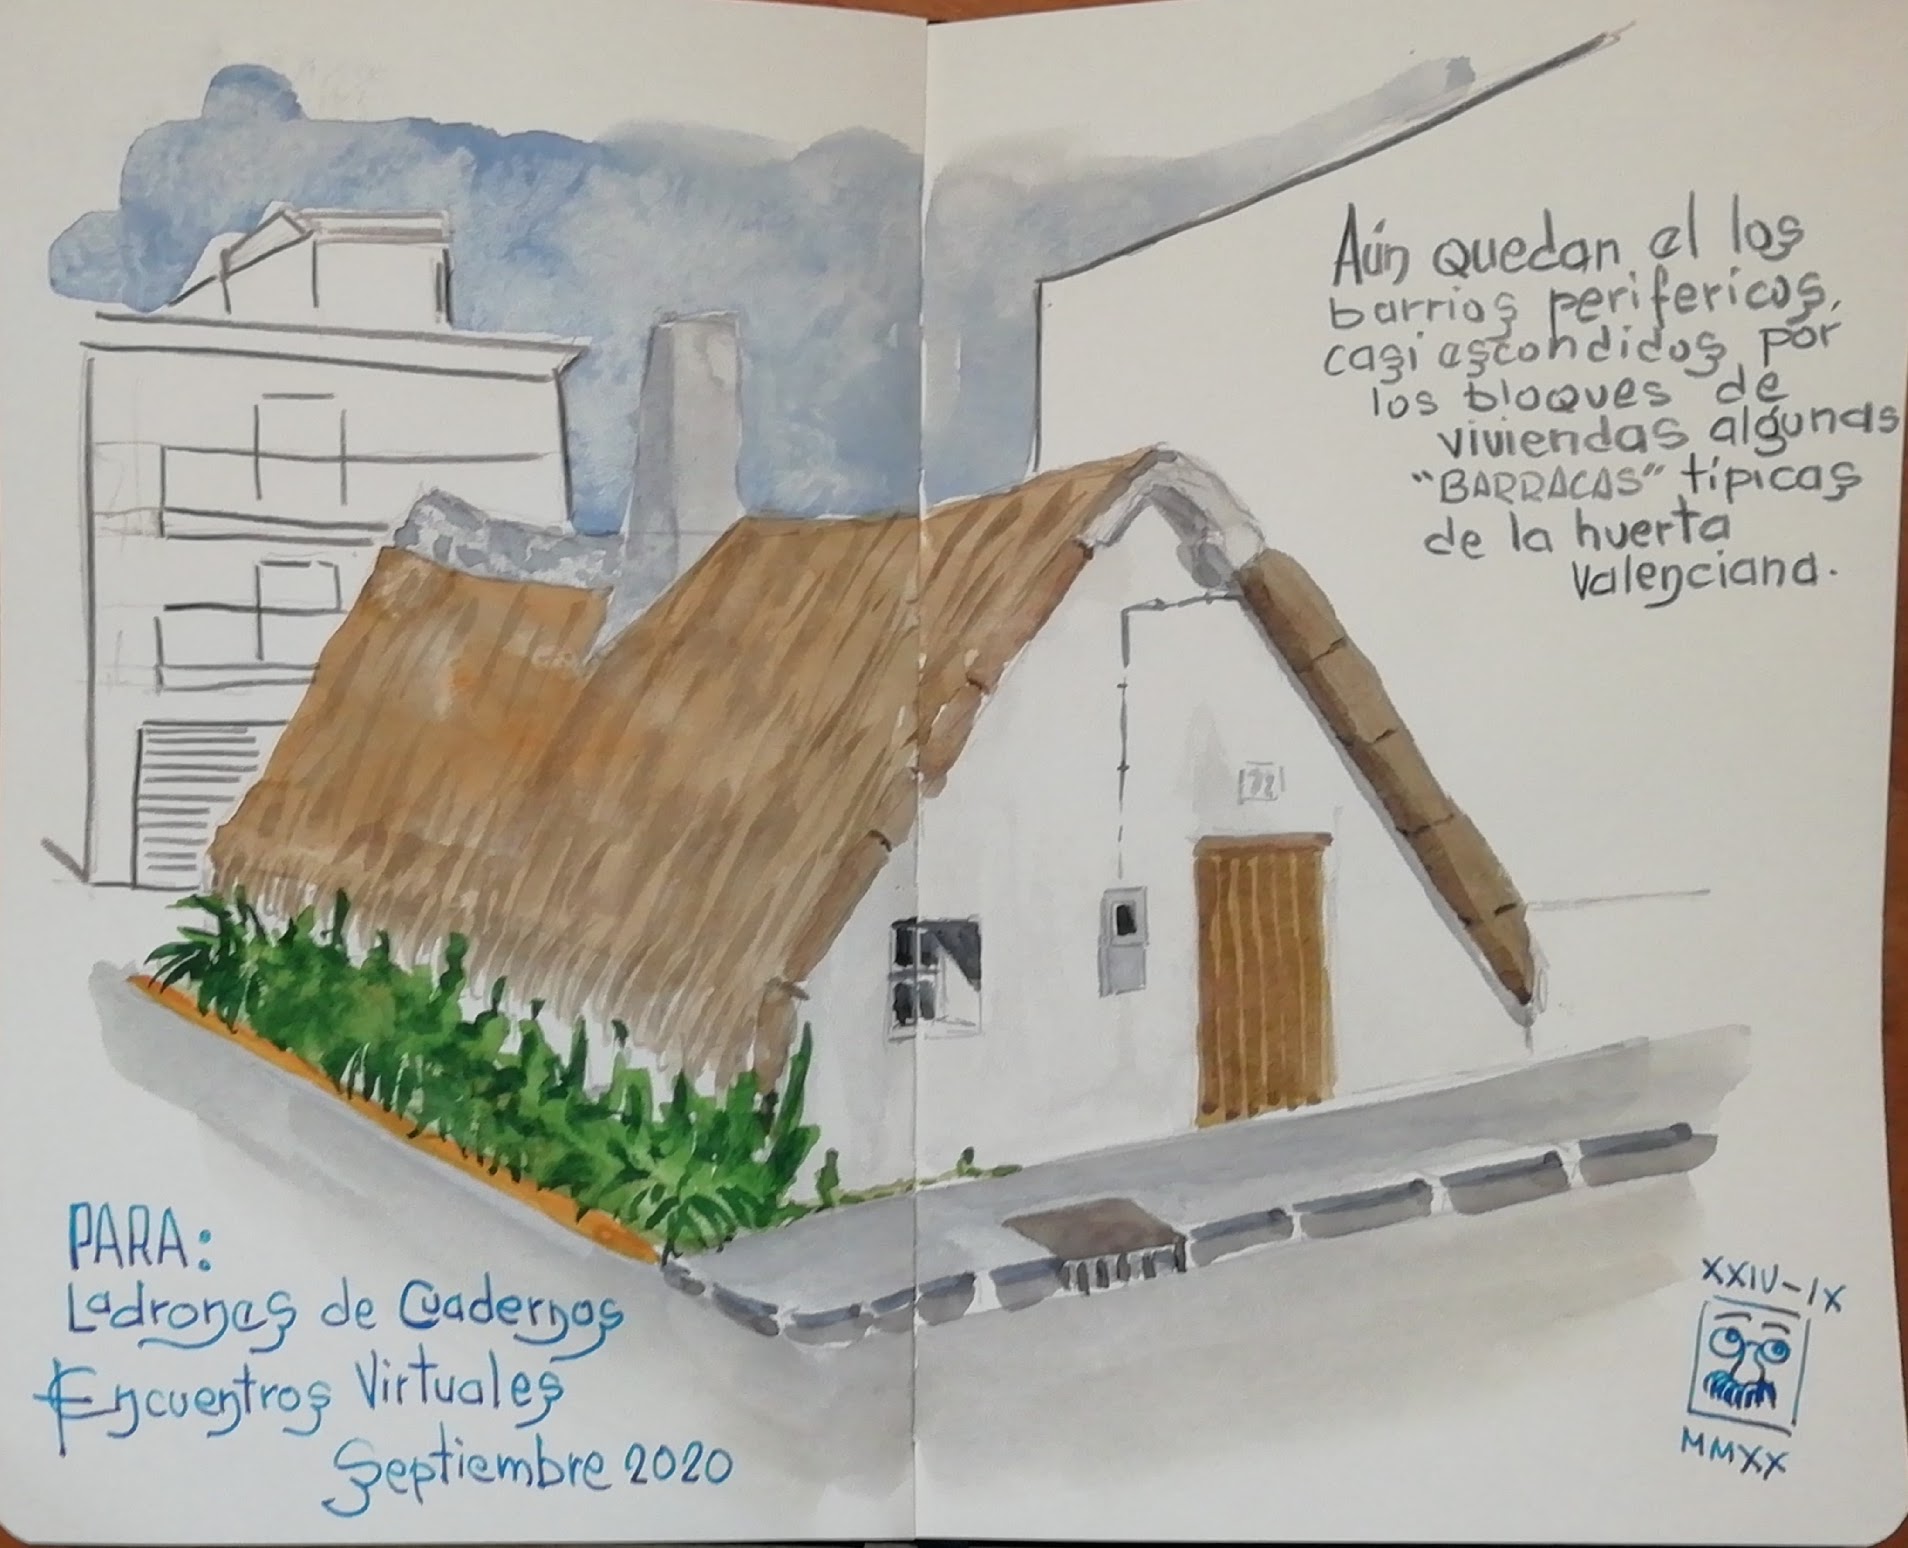 Aún quedan el los
barrios perifericos,
casi escondidos por
los bloques de
viviendas algunas
"BARRACAS" típicas
de la huerta
valenciana.
PARA:
Ladronas de Cuadernos
Encuentros Virtuales
Septiembre 2020
XXIV-IX
MMXX